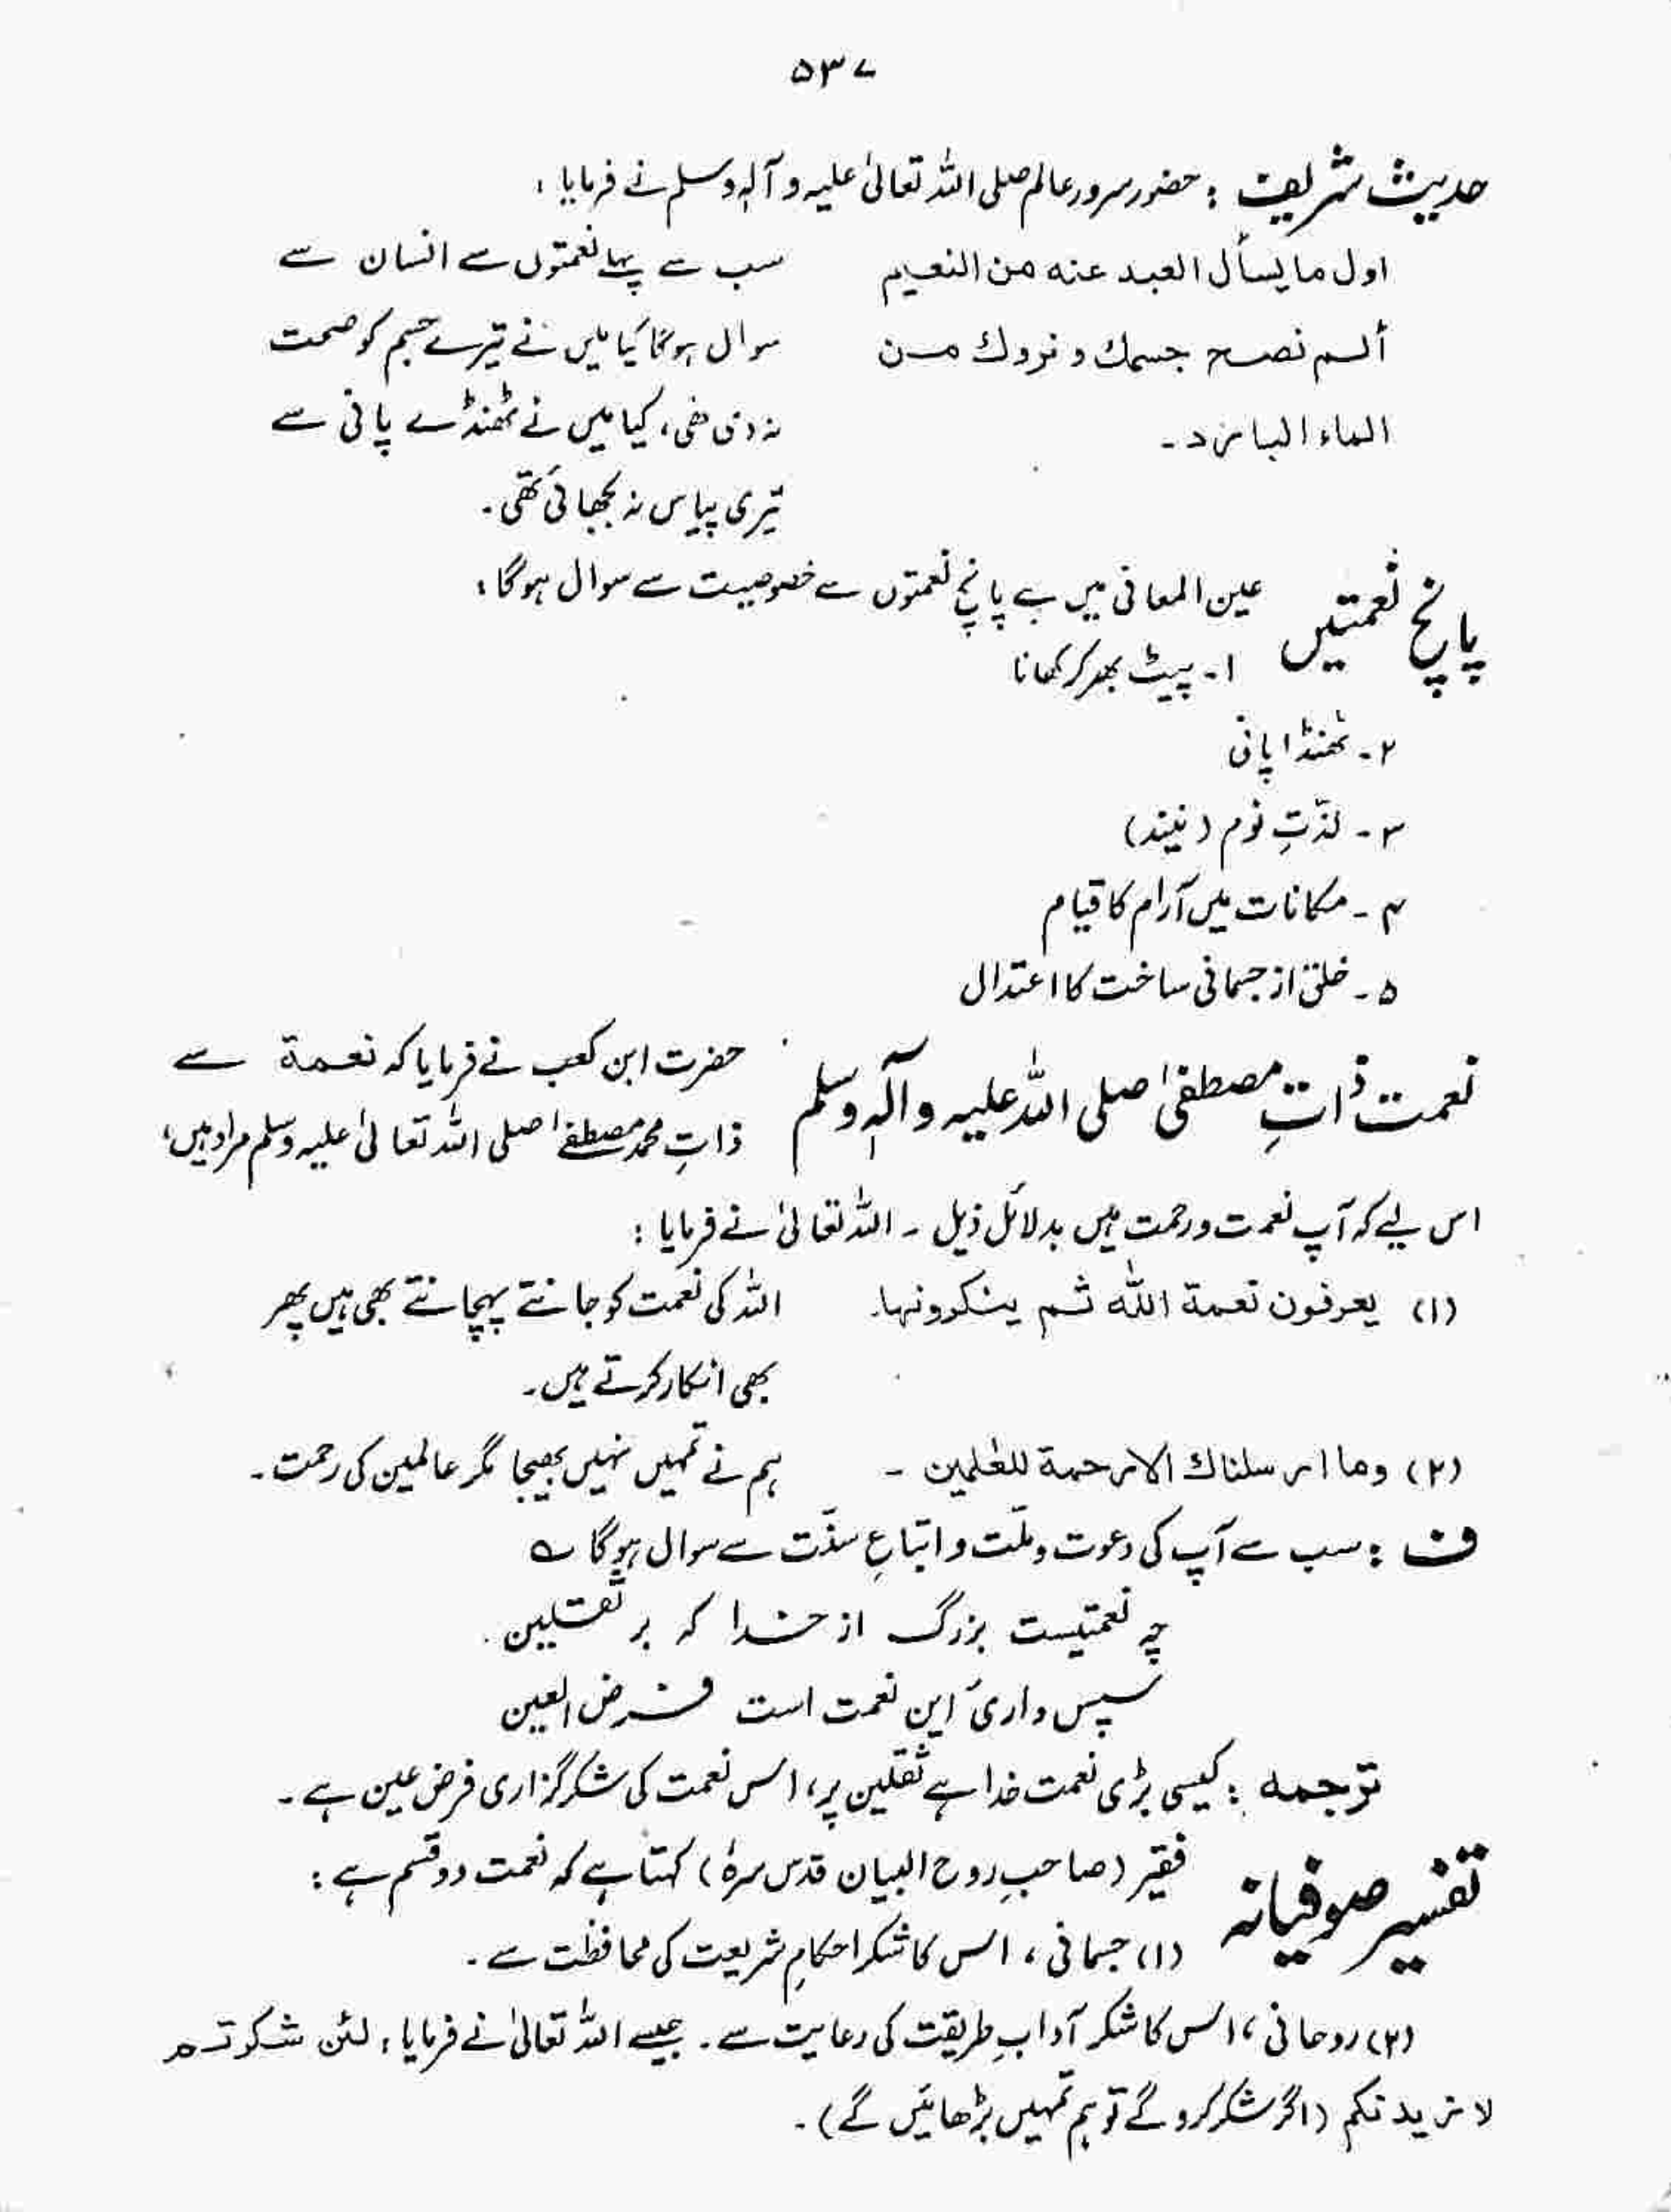 ۵۳۷
حدیث شریف : حضور سرور عالم صلی اللہ تعالیٰ علیہ و آلہٖ وسلم نے فرمایا :
اول ما یسأل العبد عنه من النعیم
ألم نصح جسمك و نروك من
الماء البارد۔
سب سے پہلے نعمتوں سے انسان سے
سوال ہوگا کیا میں نے تیرے جسم کو صحت
نہ دی تھی، کیا میں نے ٹھنڈے پانی سے
تیری پیاس نہ بجھائی تھی۔
پانچ نعمتیں
عین المعانی میں ہے پانچ نعمتوں سے خصوصیت سے سوال ہوگا :
۱۔ پیٹ بھر کر کھانا
۲۔ ٹھنڈا پانی
۳۔ لذّتِ نوم (نیند)
۴۔ مکانات میں آرام کا قیام
۵۔ خلق از جسمانی ساخت کا اعتدال
نعمت ذاتِ مصطفیٰ صلی اللہ علیہ وآلہٖ وسلم
حضرت ابن کعب نے فرمایا کہ نعمة سے
ذاتِ محمد مصطفےٰ صلی اللہ تعالیٰ علیہ وسلم مراد ہیں،
اس لیے کہ آپ نعمت و رحمت ہیں بدلائل ذیل ۔ اللہ تعالیٰ نے فرمایا :
(۱) یعرفون نعمة اللہ ثم ینکرونها۔
اللہ کی نعمت کو جانتے پہچانتے بھی ہیں پھر
بھی انکار کرتے ہیں۔
(۲) وما ارسلناك الا رحمة للعٰلمین ۔
ہم نے تمہیں نہیں بھیجا مگر عالمین کی رحمت۔
ف : سب سے آپ کی دعوت و ملّت و اتباعِ سنّت سے سوال ہوگا ؎
چہ نعمتیست بزرگ از خدا کہ بر ثقلین
سپس داریٔ این نعمت است فرض العین
ترجمہ : کیسی بڑی نعمت خدا ہے ثقلین پر، اس نعمت کی شکر گزاری فرض عین ہے ۔
تفسیر صوفیانہ
فقیر (صاحبِ روح البیان قدس سرہٗ) کہتا ہے کہ نعمت دو قسم ہے :
(۱) جسمانی ، اس کا شکر احکامِ شریعت کی محافظت سے ۔
(۲) روحانی ، اس کا شکر آدابِ طریقت کی رعایت سے ۔ جیسے اللہ تعالیٰ نے فرمایا : لئن شکرتم
لازیدنکم (اگر شکر کرو گے تو ہم تمہیں بڑھائیں گے) ۔